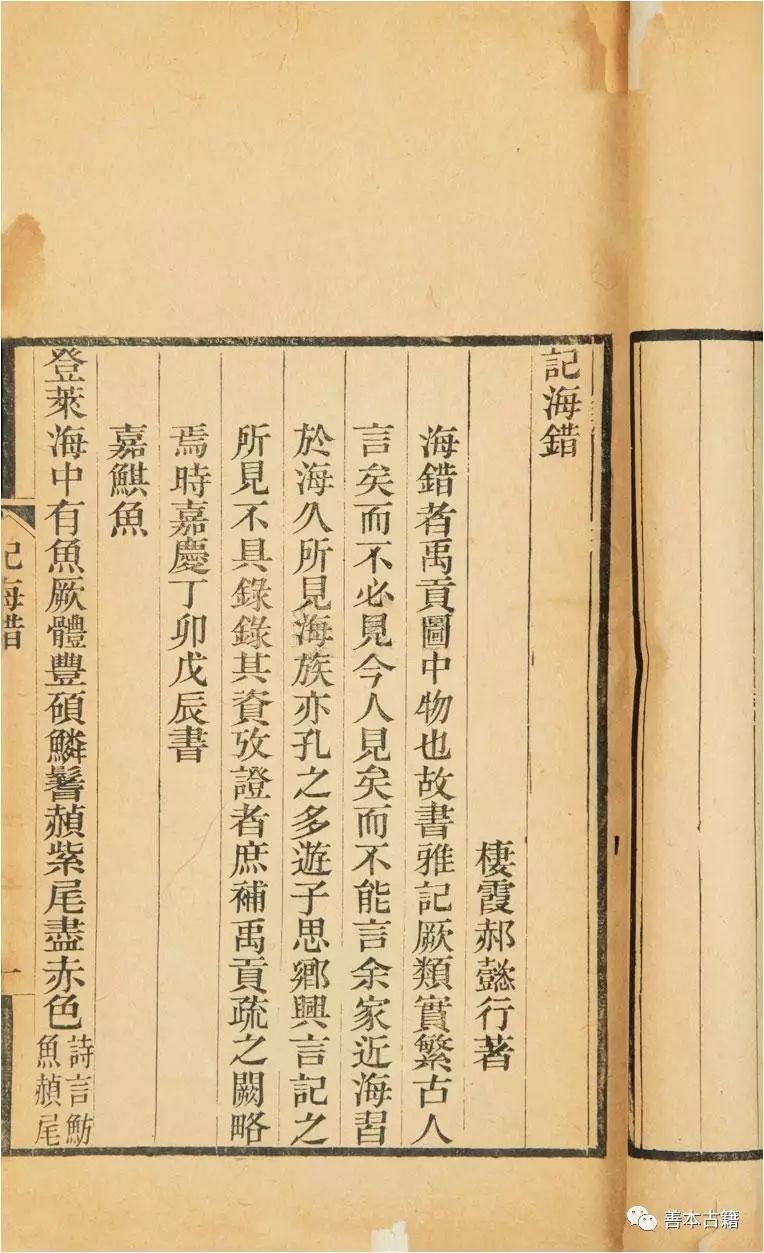 記海錯
棲霞郝懿行著
海錯者禹貢圖中物也故書雅記厥類實繁古人
言矣而不必見今人見矣而不能言余家近海習
於海久所見海族亦孔之多遊子思鄉興言記之
所見不具錄錄其資攷證者庶補禹貢疏之闕略
焉時嘉慶丁卯戊辰書
嘉鯕魚
登萊海中有魚厥體豐碩鱗鬐赬紫尾盡赤色
詩言魴
魚赬尾
記海錯
一
善本古籍